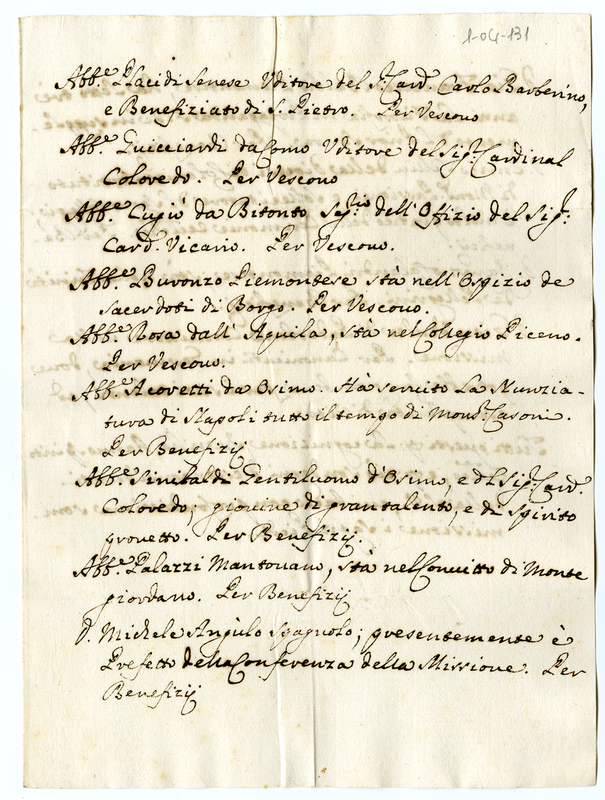 1-04-131
Abb.e Placidi Senese Vditore del S.r Card. Carlo Barberino,
e Benefiziato di S. Pietro. Per Vescouo
Abb.e Guicciardi da Como Vditore del Sig.r Cardinal
Coloredo. Per Vescouo
Abb.e Cupiù da Bitonto Seg.rio dell'Offizio del Sig.r
Card. Vicario. Per Vescouo.
Abb.e Buronzo Piemontese stà nell'Ospizio de
Sacerdoti di Borgo. Per Vescouo.
Abb.e Rosa dall'Aquila, stà nel Collegio Piceno.
Per Vescouo.
Abb.e Acoretti da Osimo. Hà seruito La Nunzia-
tura di Napoli tutto il tempo di Mons.r Casoni.
Per Benefizij
Abb.e Sinibaldi Gentiluomo d'Osimo, e dl Sig.r Card.
Coloredo; giouine di gran talento, e di spirito
prouetto. Per Benefizij.
Abb.e Palazzi Mantouano, stà nel Conuitto di Monte
giordano. Per Benefizij
D. Michele Angiulo Spagnuolo; presentemente è
Prefetto della Conferenza della Missione. Per
Benefizij